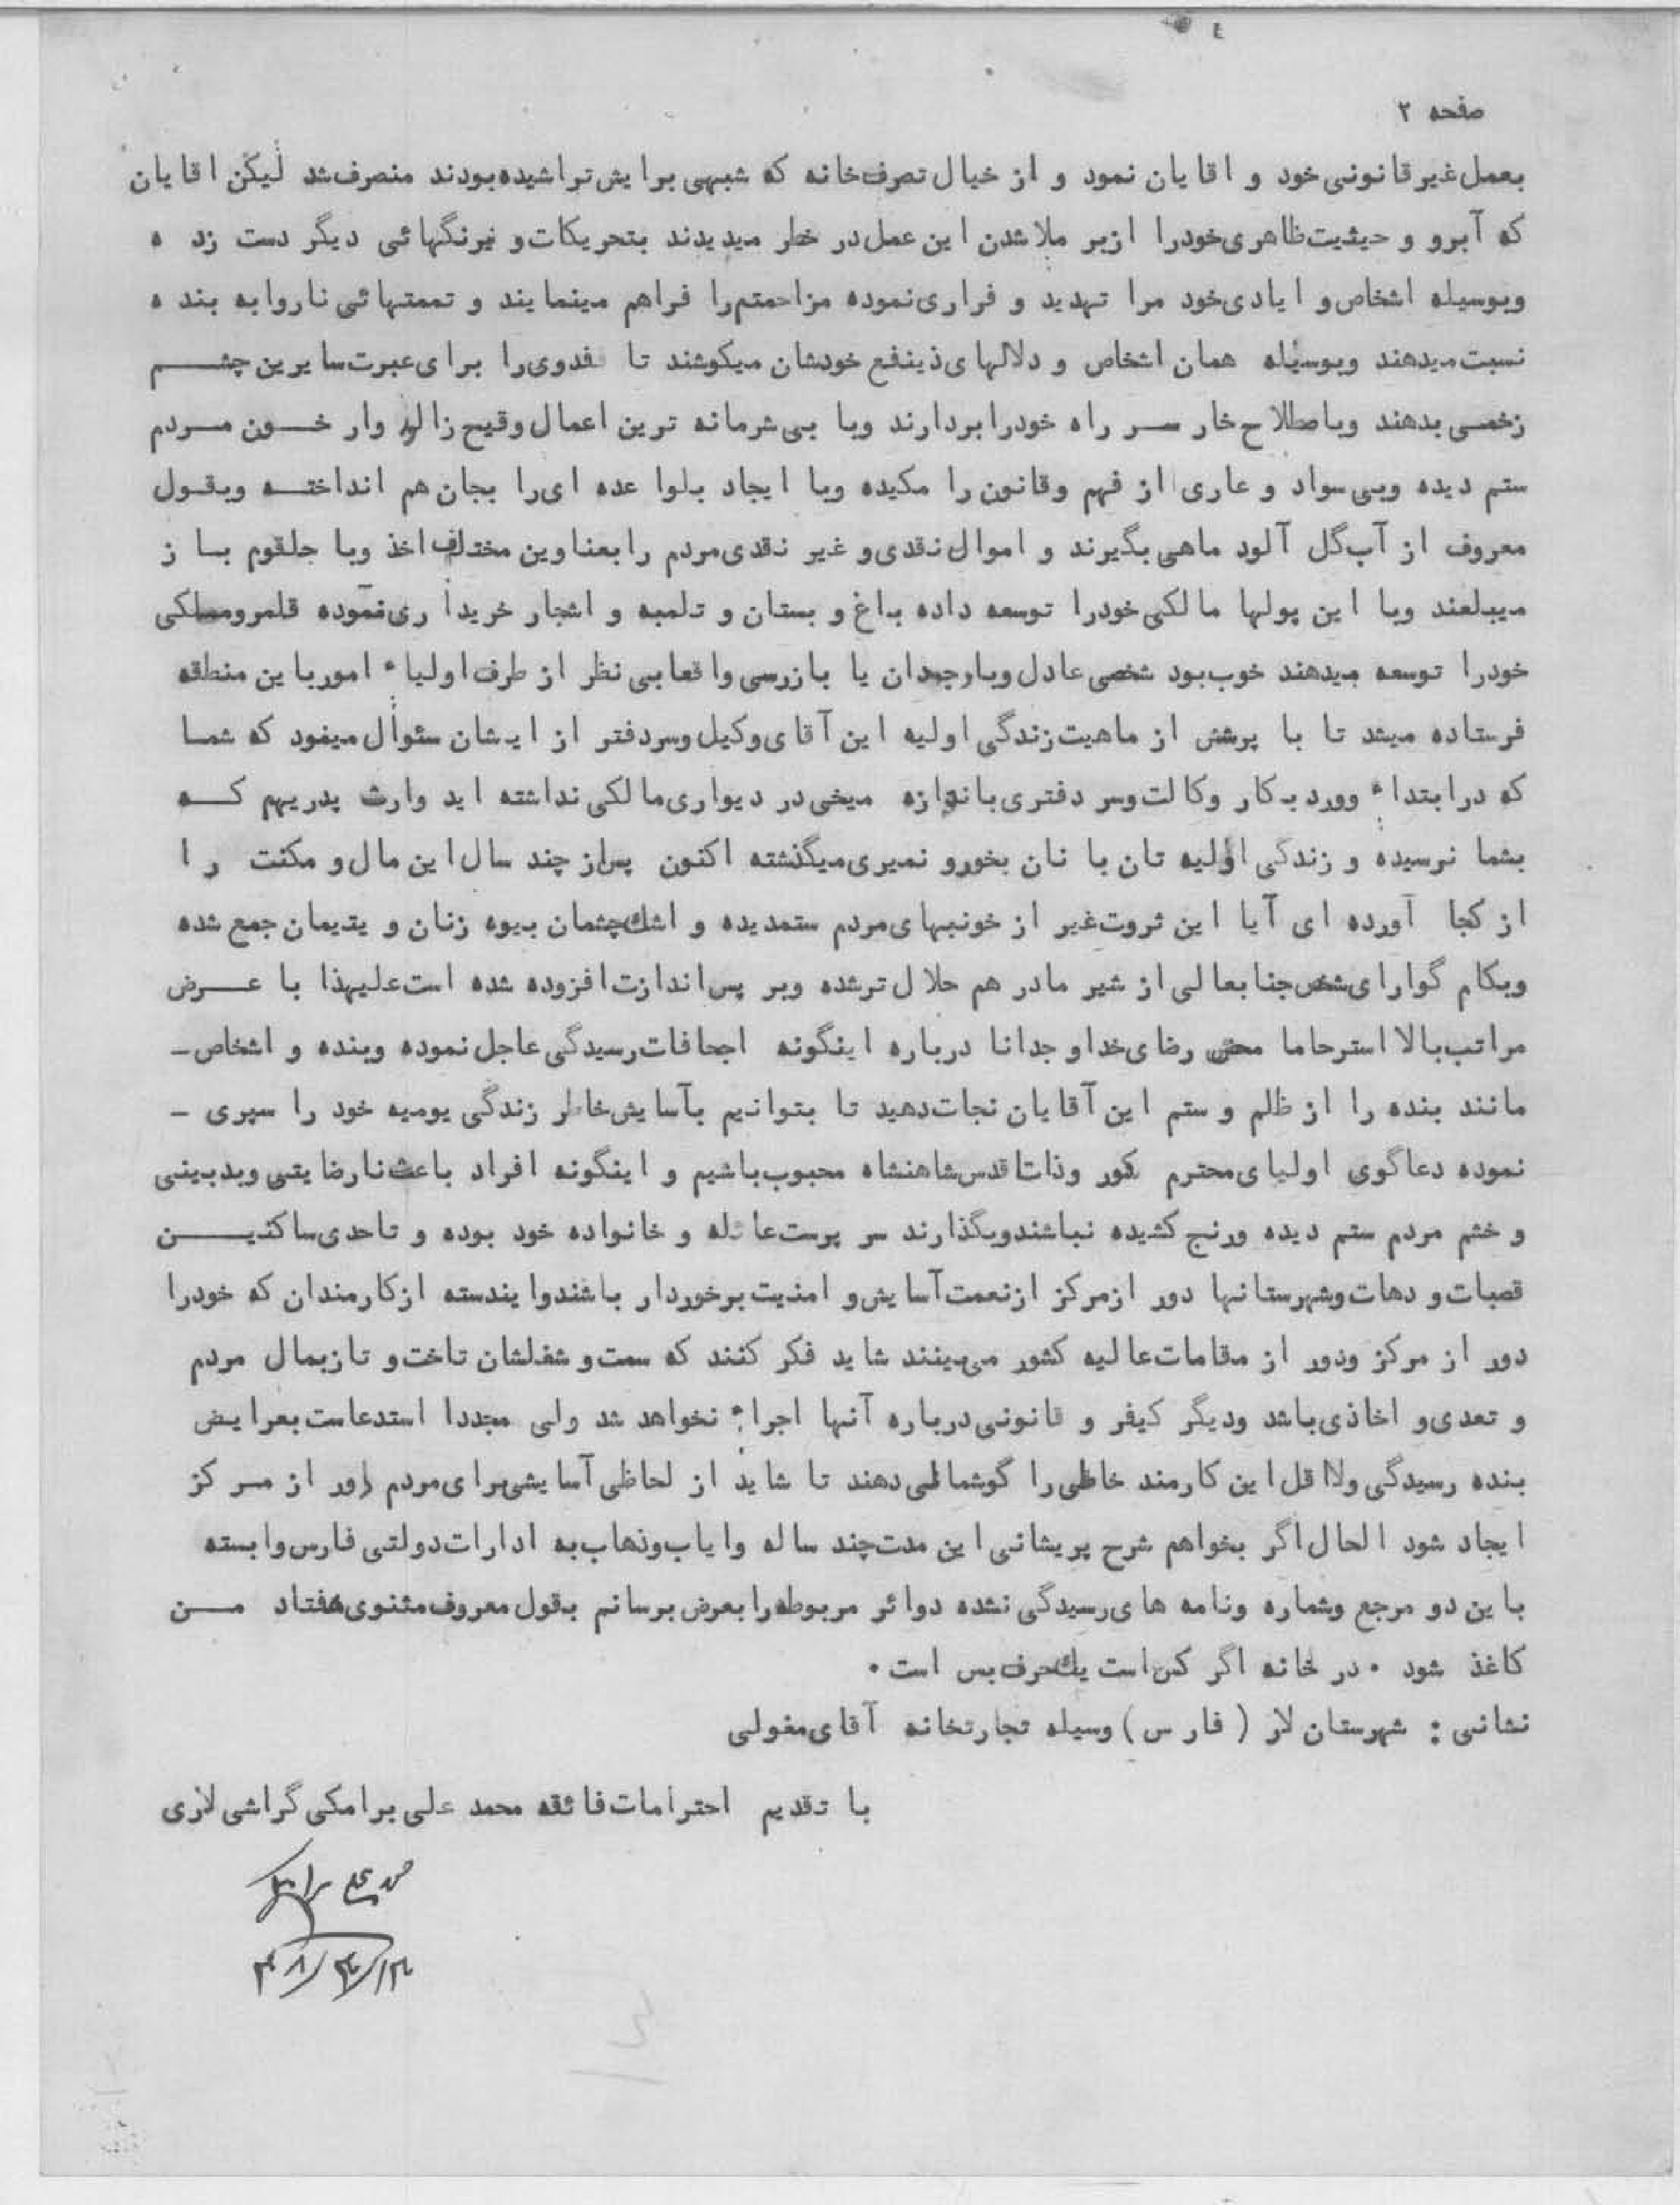 صفحه ۲
بعمل غیر قانونی خود و اقایان نمود و از خیال تصرف خانه که شبهی برایش تراشیده بودند منصرف شد لیکن اقایان
که آبرو و حیثیت ظاهری خودرا ازبر ملا شدن این عمل در خطر میدیدند بتحریکات و نیرنگهائی دیگر دست زد ه
وبوسیله اشخاص و ایادی خود مرا تهدید و فراری نموده مزاحمتم را فراهم مینمایند و تممتهائی ناروا به بند ه
نسبت میدهند وبوسیله همان اشخاص و دلالهای ذینفع خودشان میکوشند تا فدوی را برای عبرت سایرین چشم
زخمی بدهند وباصطلاح خار سر راه خودرا بردارند وبا بی شرمانه ترین اعمال وقیح زالو وار خون مردم
ستم دیده وبی سواد و عاری از فهم وقانون را مکیده وبا ایجاد بلوا عده ای را بجان هم انداخته وبقول
معروف از آب گل آلود ماهی بگیرند و اموال نقدی و غیر نقدی مردم را بعناوین مختلف اخذ وبا حلقوم با ز
میبلعند وبا این پولها مالکی خودرا توسعه داده باغ و بستان و تلمبه و اشجار خریداری نموده قلمرو مملکی
خودرا توسعه میدهند خوب بود شخصی عادل وبا وجدان یا بازرسی واقعا بی نظر از طرف اولیاء امور باین منطقه
فرستاده میشد تا با پرشش از ماهیت زندگی اولیه این آقای وکیل وسردفتر از ایشان سئوال میفود که شما
که درابتداء وورد بکار وکالت وسر دفتری باندازه میخی در دیواری مالکی نداشته اید وارث پدریهم که
بشما نرسیده و زندگی اولیه تان با نان بخورو نمیری میگذشته اکنون پس از چند سال این مال و مکنت را
از کجا آورده ای آیا این ثروت غیر از خونبهای مردم ستمدیده و اشک چشمان بیوه زنان و یتیمان جمع شده
وبکام گوارای شخص جنابعالی از شیر مادر هم حلال ترشده وبر پس اندازت افزوده شده است علیهذا با عرض
مراتب بالا استرحاما محض رضای خدا وجدانا درباره اینگونه اجحافات رسیدگی عاجل نموده وبنده و اشخاص -
مانند بنده را از ظلم و ستم این آقایان نجات دهید تا بتوانیم بآسایش خاطر زندگی یومیه خود را سپری -
نموده دعاگوی اولیای محترم کور وذات اقدس شاهنشاه محبوب باشیم و اینگونه افراد باعث نارضایتی وبدبینی
و خشم مردم ستم دیده ورنج کشیده نباشند وبگذارند سر پرست عائله و خانواده خود بوده و تاحدی ساکنین
قصبات و دهات وشهرستانها دور ازمرکز ازنعمت آسایش و امنیت برخوردار باشند وایندسته ازکارمندان که خودرا
دور از مرکز ودور از مقامات عالیه کشور می بینند شاید فکر کنند که سمت و شغلشان تاخت و تاز بمال مردم
و تعدی و اخاذی باشد ودیگر کیفر و قانونی درباره آنها اجراء نخواهد شد ولی مجددا استدعاست بعرایض
بنده رسیدگی ولا اقل این کارمند خاطی را گوشمالی دهند تا شاید از لحاظی آسایشی برای مردم دور از مرکز
ایجاد شود الحال اگر بخواهم شرح پریشانی این مدت چند ساله وایاب وذهاب به ادارات دولتی فارس وابسته
باین دو مرجع وشماره ونامه های رسیدگی نشده دوائر مربوطه را بعرض برسانم بقول معروف مثنوی هفتاد من
کاغذ شود ۰ در خانه اگر کس است یک حرف بس است ۰
نشانی : شهرستان لار ( فارس ) وسیله تجارتخانه آقای مغولی
با تقدیم احترامات فائقه محمد علی برامکی گراشی لاری
محمد علی برامکی